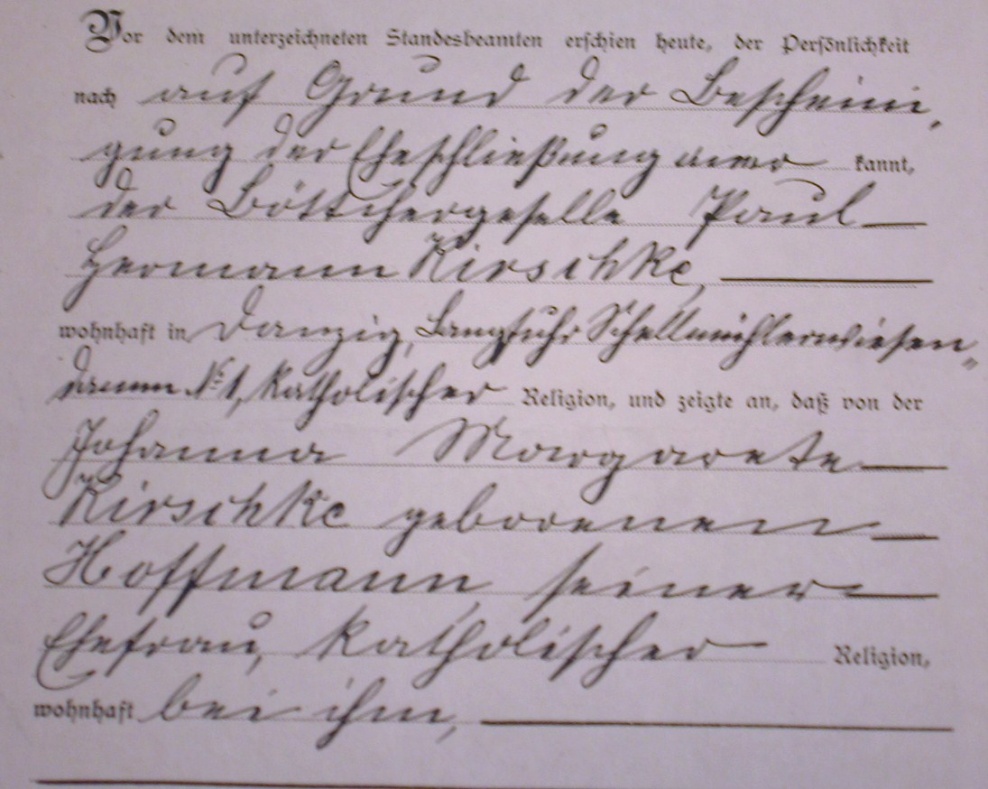 Vor dem unterzeichneten Standesbeamten erschien heute, der Persönlichkeit
nach auf Grund der Bescheini-
gung der Eheschließung aner kannt,
der Böttchergeselle Paul
Hermann Kirschke,
wohnhaft in Danzig, Langfuhr Schellmühlerwiesen-
damm № 1, katholischer Religion, und zeigte an, daß von der
Johanna Margarete
Kirschke geborenen
Hoffmann, seiner
Ehefrau, katholischer Religion,
wohnhaft bei ihm,